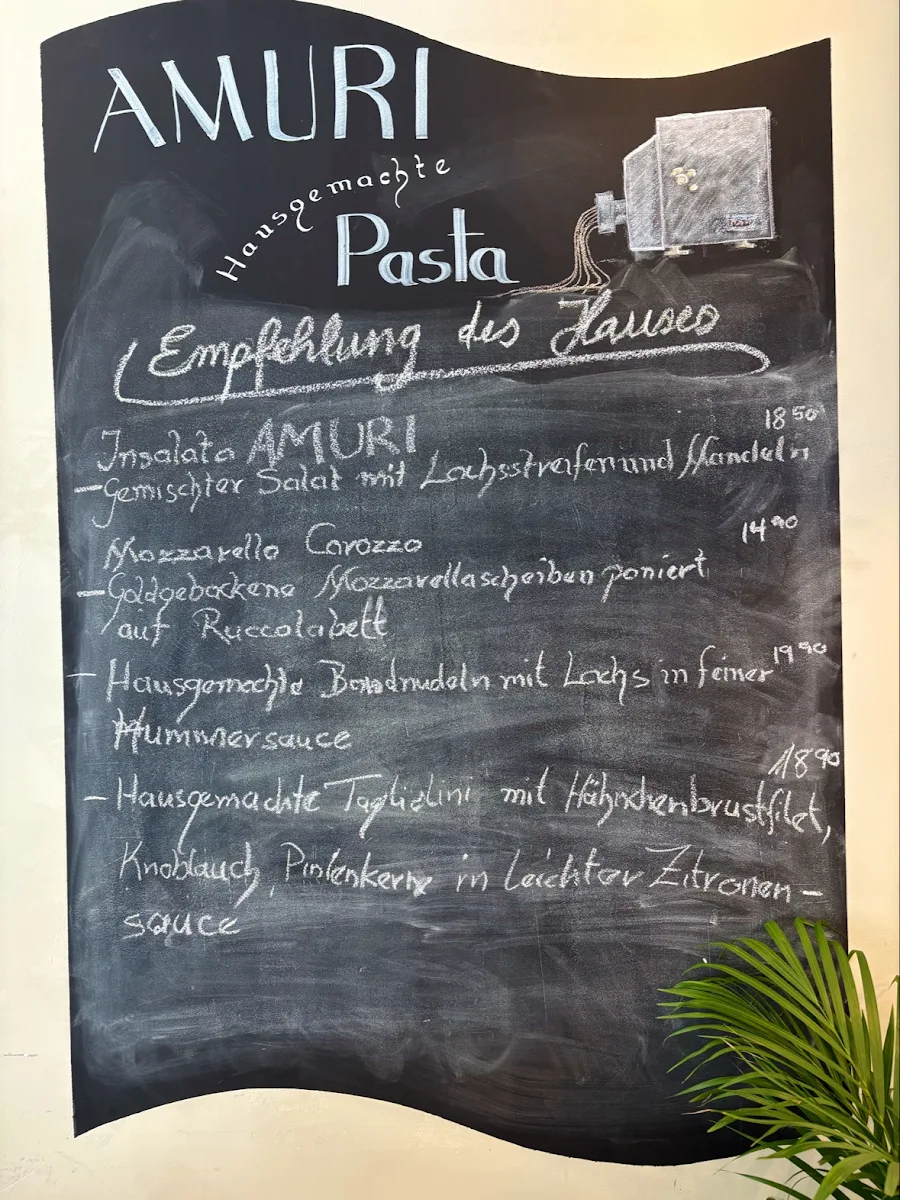 AMURI
Hausgemachte
Pasta
Empfehlung des Hauses
18 50
Insalata AMURI
- Gemischter Salat mit Lachsstreifen und Mandeln
14 90
Mozzarella Carozza
- Goldgebackene Mozzarellascheiben paniert
auf Ruccolabett
19 90
- Hausgemachte Bandnudeln mit Lachs in feiner
Hummersauce
18 90
- Hausgemachte Taglielini mit Hähnchenbrustfilet,
Knoblauch, Pinienkerne in leichter Zitronen-
sauce